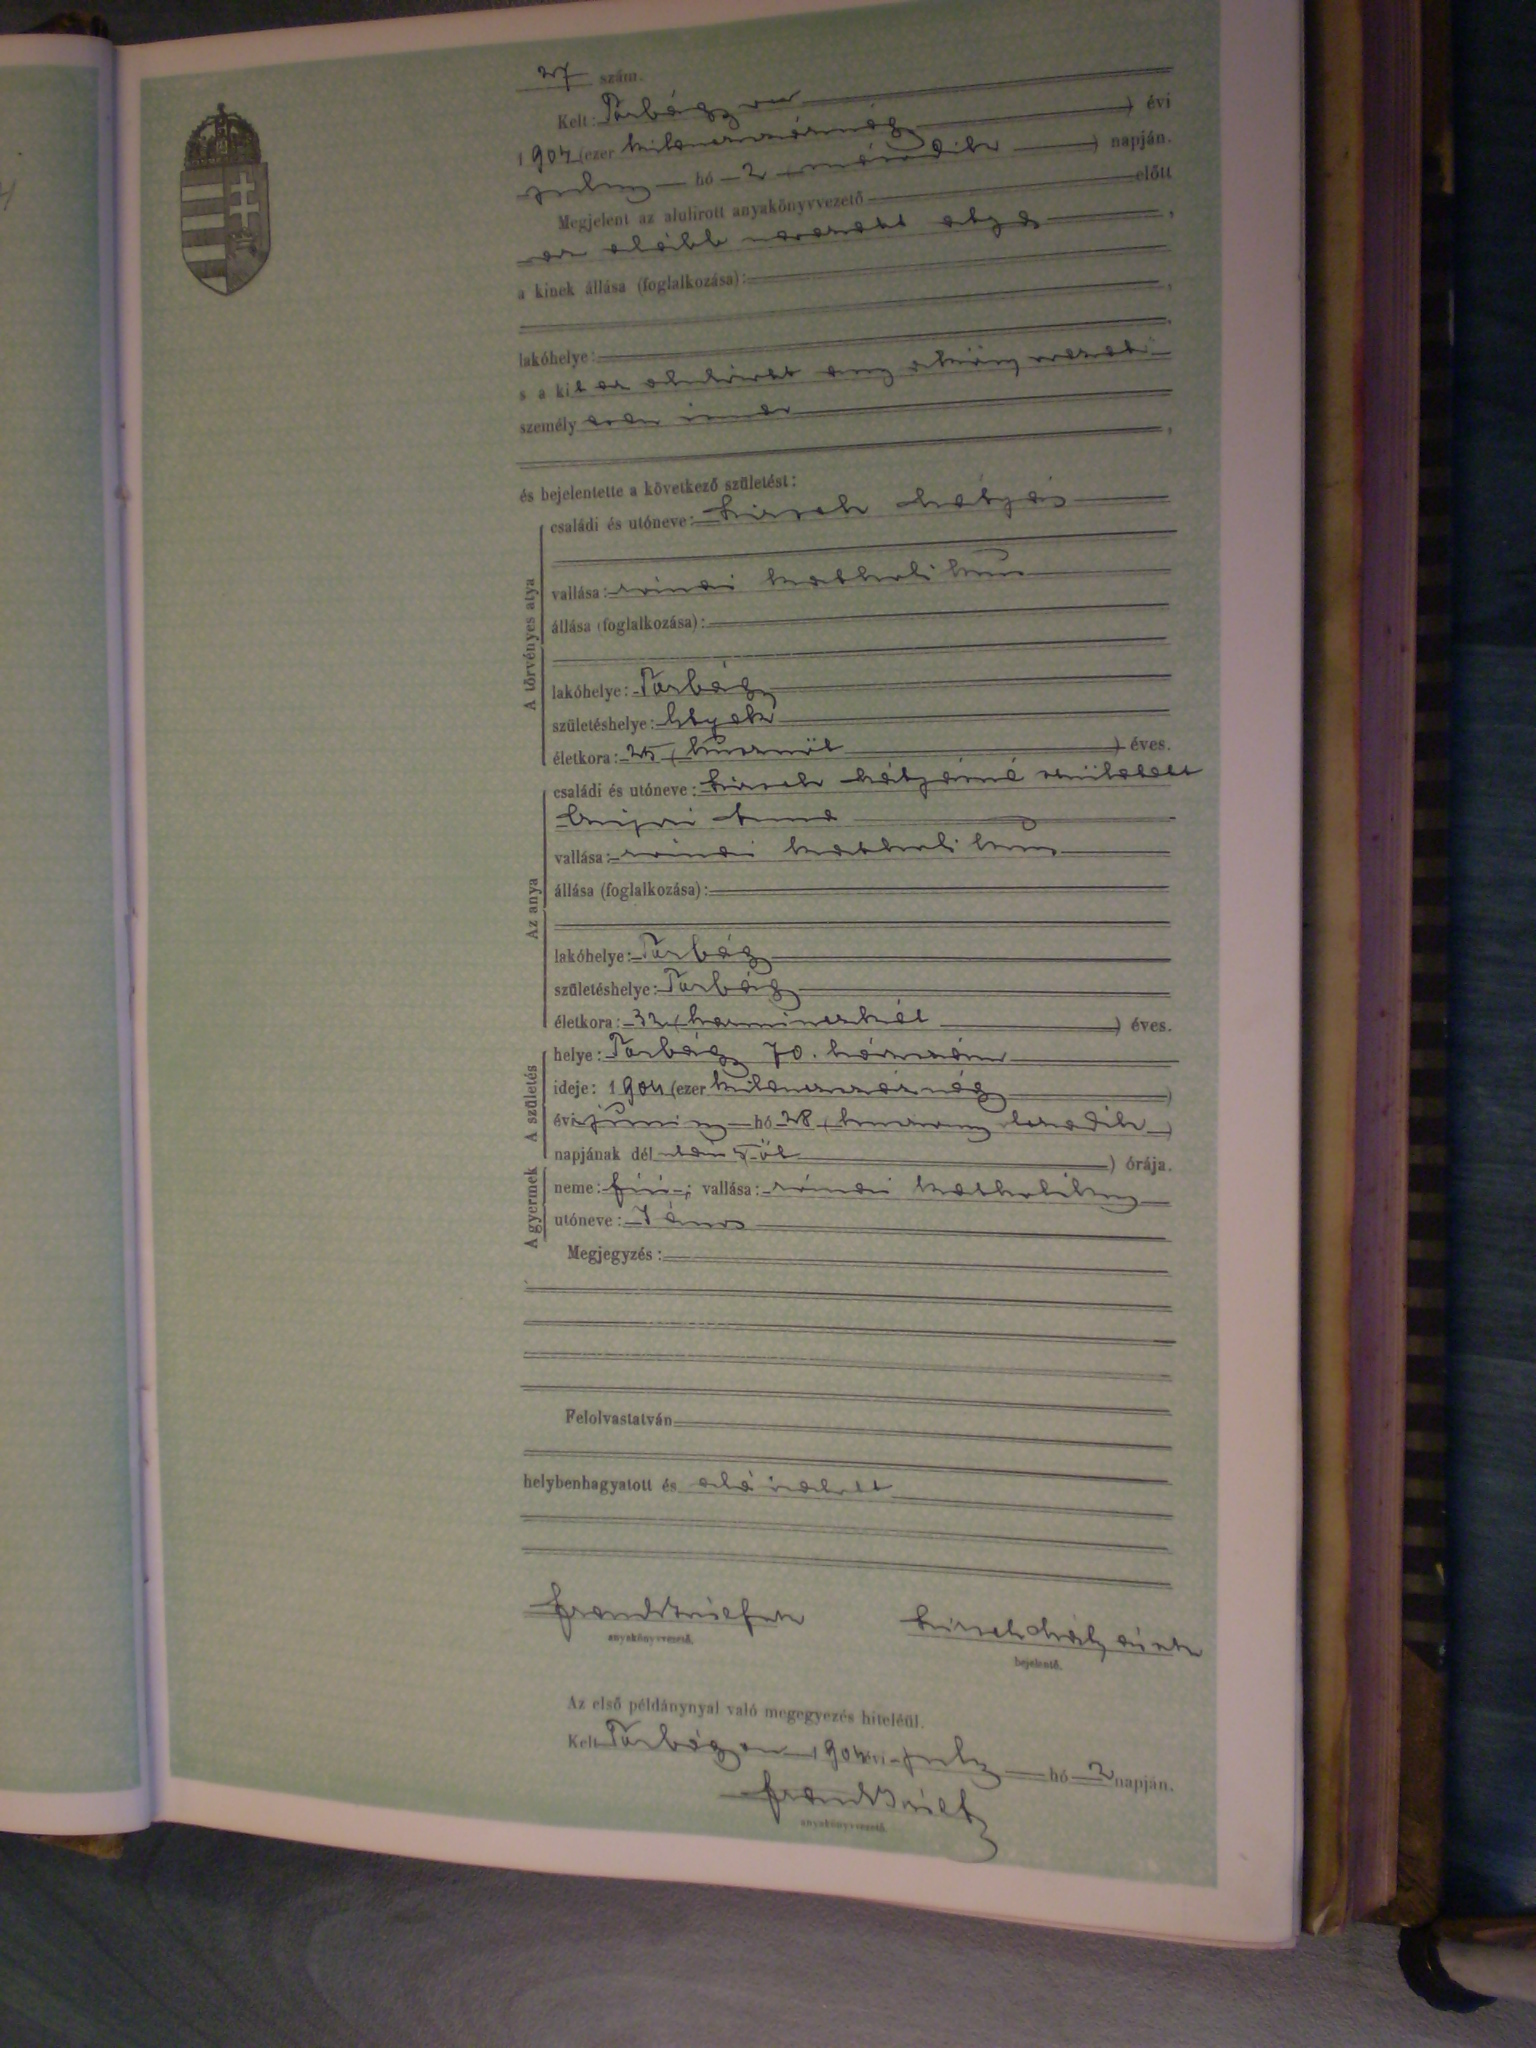 27 szám.
Kelt: Torbágyon
1904 (ezer kilencszáznégy) évi
july hó 2 (második) napján.
Megjelent az alulírott anyakönyvvezető előtt
az alább nevezett atya,
a kinek állása (foglalkozása):
lakóhelye:
s a kit az alulírott anyakönyvvezető
személyesen ismer
és bejelentette a következő születést:
A törvényes atya
családi és utóneve: Hirsch Mátyás
vallása: római katholikus
állása (foglalkozása):
lakóhelye: Torbágy
születéshelye: Etyek
életkora: 25 (huszonöt) éves.
Az anya
családi és utóneve: Hirsch Mátyásné született
Anna
vallása: római katholikus
állása (foglalkozása):
lakóhelye: Torbágy
születéshelye: Torbágy
életkora: 32 (harminczkét) éves.
A születés
helye: Torbágy 70. házszám
ideje: 1904 (ezer kilencszáznégy)
évi júni hó 28 (huszonnyolczadik)
napjának dél után 5 öt) órája.
A gyermek
neme: fiú; vallása: római katholikus
utóneve: János
Megjegyzés:
Felolvastatván
helybenhagyatott és aláíratott
anyakönyvvezető.
bejelentő.
Az első példánynyal való megegyezés hiteléül.
Kelt Torbágyon 1904 évi july hó 2 napján.
anyakönyvvezető.